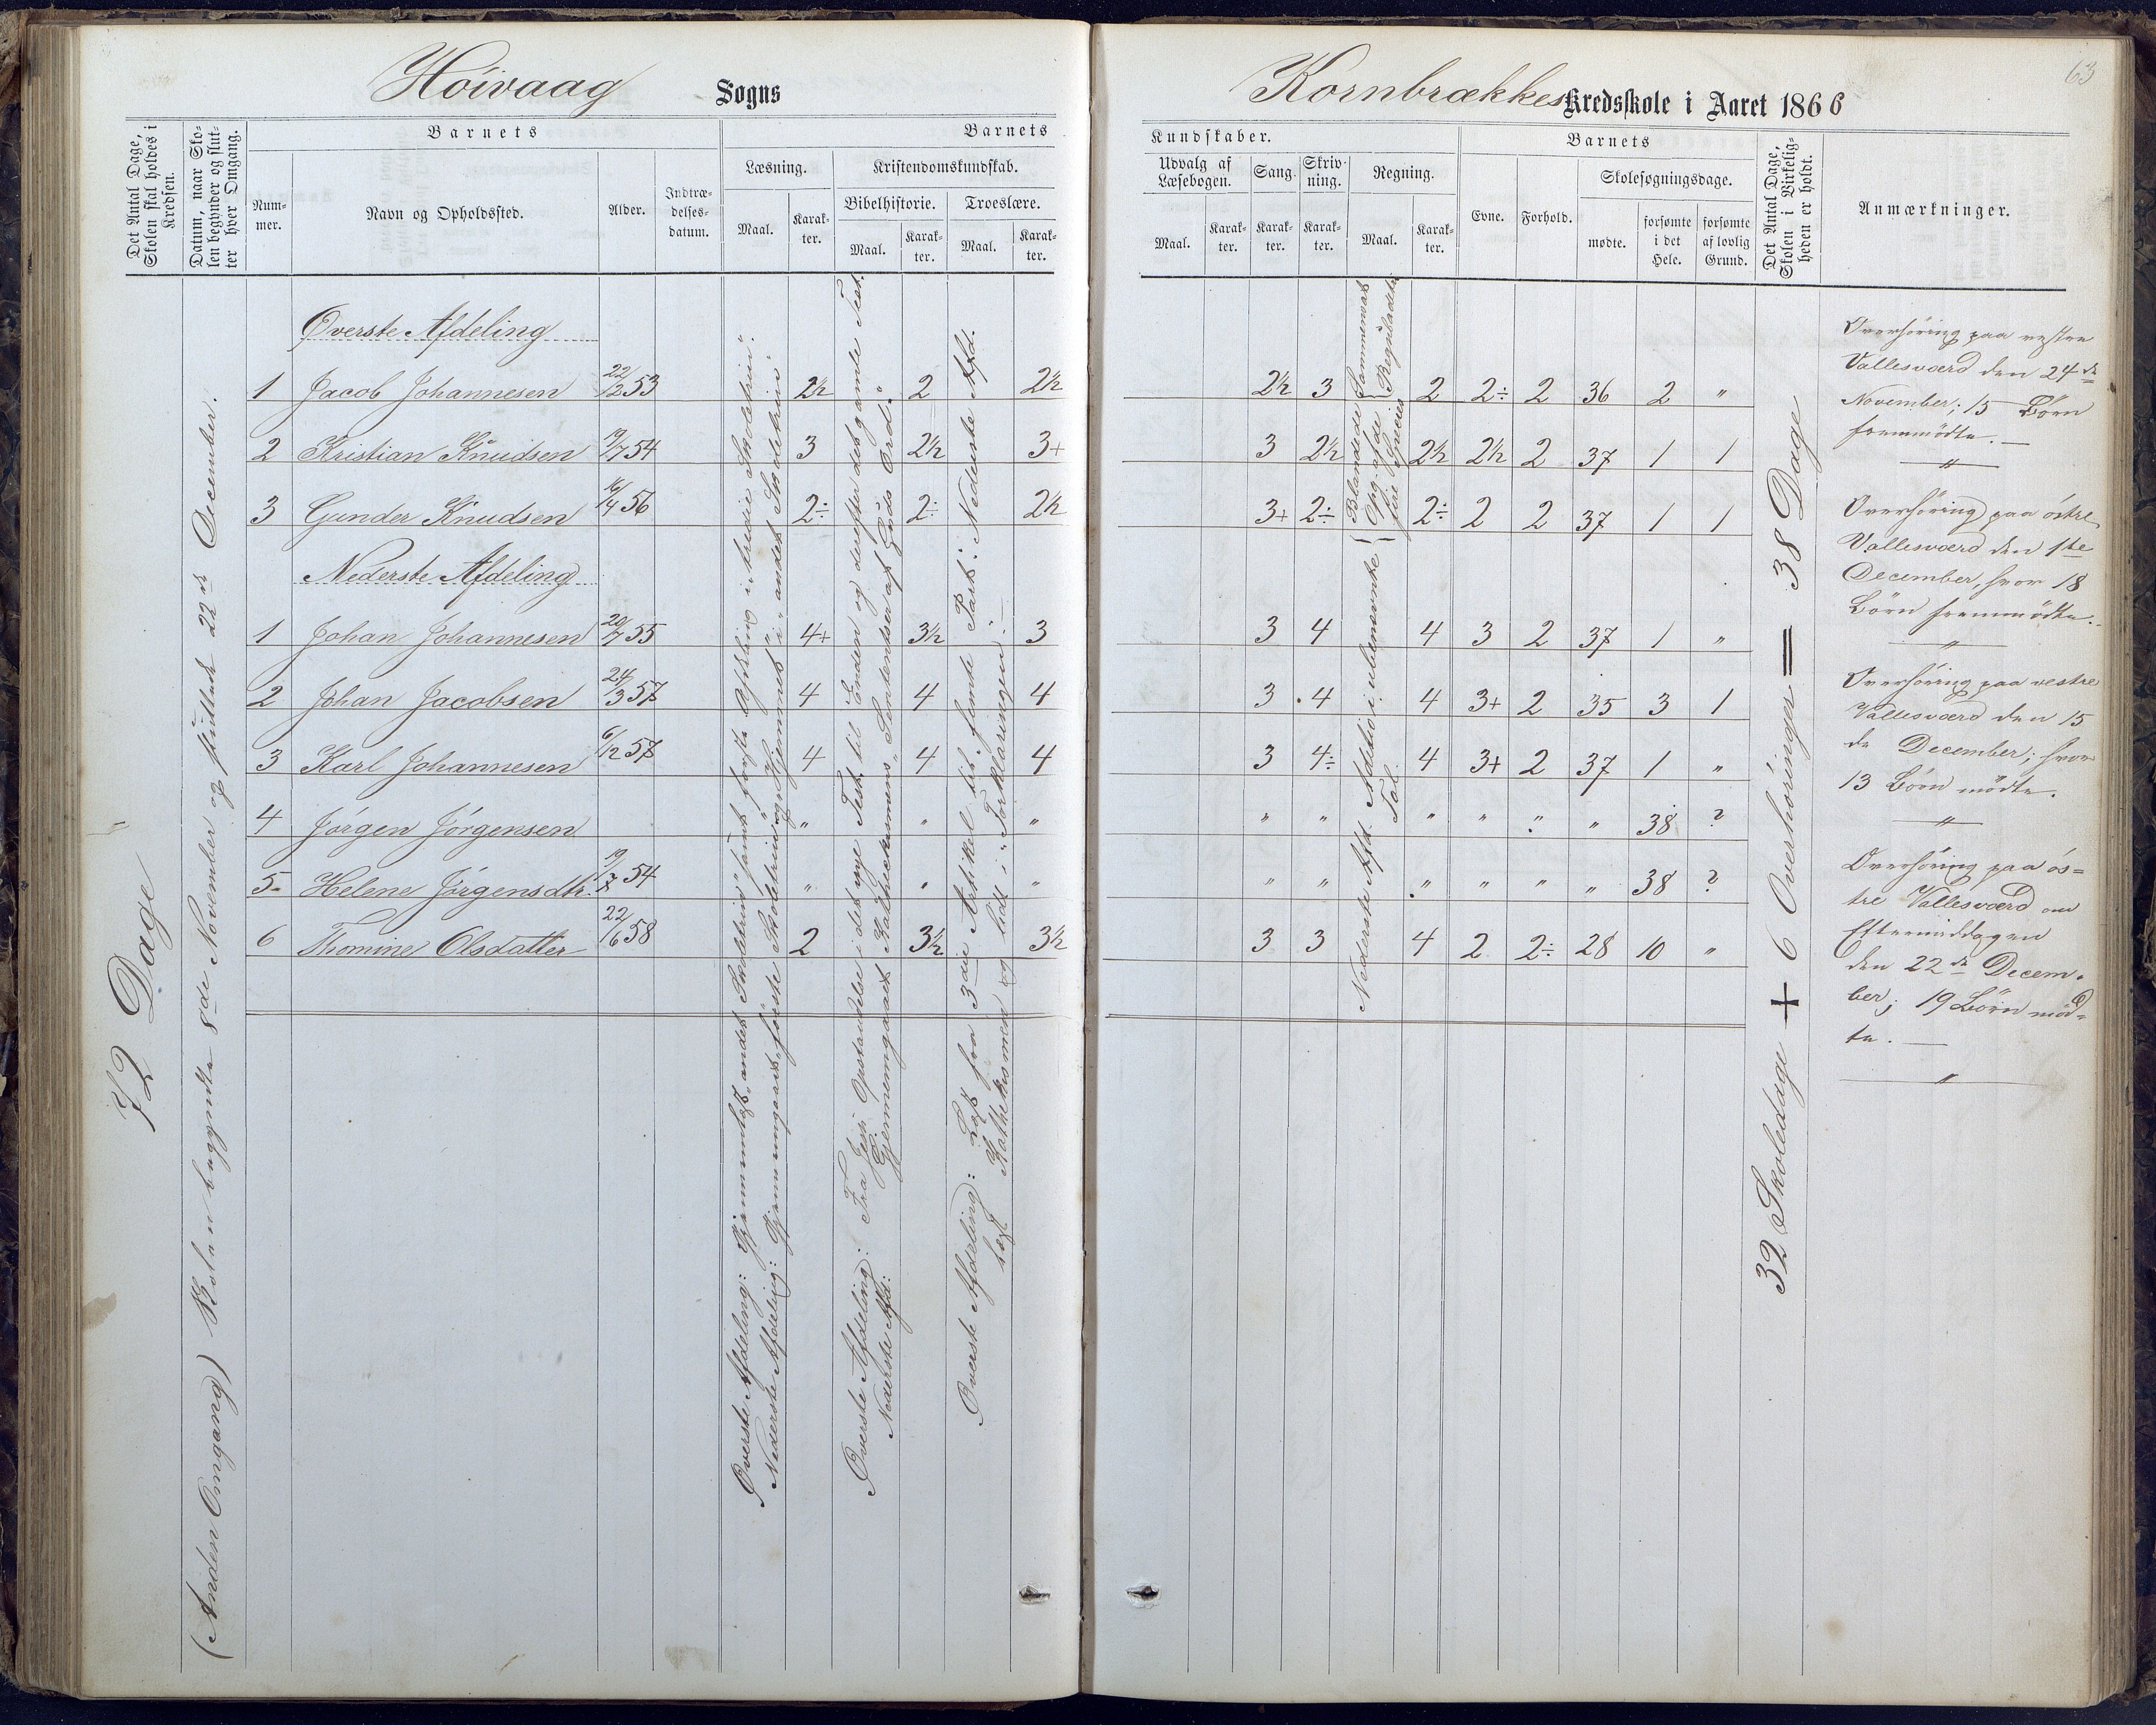 63
Höivaag Sogns
Kornbrækkes Kredsskole i Aaret 1866
Det Antal Dage, Skolen skal holdes i Kredsen.
Datum, naar Skolen begynder og slutter hver Omgang.
Barnets
Nummer.
Navn og Opholdssted.
Alder.
Indtrædelsesdatum.
Barnets
Læsning.
Maal.
Karakter.
Kristendomskundskab.
Bibelhistorie.
Maal.
Karakter.
Troeslære.
Maal.
Karakter.
Kundskaber.
Udvalg af Læsebogen.
Maal.
Karakter.
Sang.
Karakter.
Skrivning.
Karakter.
Regning.
Maal.
Karakter.
Barnets
Evne.
Forhold.
Skolesøgningsdage.
mødte.
forsømte i det Hele.
forsømte af lovlig Grund.
Det Antal Dage, Skolen i Virkeligheden er holdt.
Anmærkninger.
72 Dage
(Anden Omgang) Skolen begyndte 8de November og sluttede 22de December.
Øverste Afdeling
1 Jacob Johannesen 22/12 53 2½ 2 2½ 2½ 3 2 2÷ 2 36 2 "
2 Kristian Knudsen 19/7 54 3 2½ 3+ 3 2½ 2½ 2½ 2 37 1 1
3 Gunder Knudsen 16/4 56 2÷ 2÷ 2½ 3+ 2÷ 2÷ 2 2 37 1 1
Nederste Afdeling
1 Johan Johannesen 20/7 55 4+ 3½ 3 3 4 4 3 2 37 1 "
2 Johan Jacobsen 24/3 57 4 4 4 3 4 4 3+ 2 35 3 1
3 Karl Johannesen 6/12 57 4 4 4 3 4÷ 4 3+ 2 37 1 "
4 Jörgen Jörgensen " " " " " " " " " 38 ?
5 Helene Jörgensdtr. 19/7 54 " " " " " " " " " 38 ?
6 Thomine Olsdatter 22/6 58 2 3½ 3½ 3 3 4 2 2÷ 28 10 "
Øverste Afdeling: Gjennemlæst "andet Skoletrin" samt første Afdeling i "tredie Skoletrin".
Nederste Afdeling: Gjennemgaaet "förste Skoletrin" og Hjemmet i "andet Skoletrin".
Øverste Afdeling: Fra Jesu Opstandelse i det nye Test. til Enden og derefter det gamle Test.
Nederste Afd: Gjennemgaaet Kathechismens "Sentendser af Guds Ord".
Øverste Afdeling: Læst fra 3die Artikel til femte Part: Nederste Afd.
læst Kathekismen og lidt i "Forklaringen".
Blandede Sammensat
Opg. af de } Reguladetri
fire Species
Nederste Afd. Addition i ubenævnte } Tal.
32 Skoledage + 6 Overhøringer = 38 Dage
Overhøring paa vestre
Vallesværd den 24de
November; 15 Børn
fremmödte.
Overhøring paa östre
Vallesværd den 1ste
December, hvor 18
Børn fremmödte.
Overhøring paa vestre
Vallesværd den 15
de December; hvor
13 Børn mödte.
Overhøring paa ös=
tre Vallesværd om
Eftermiddagen
den 22de Decem=
ber; 19 Børn möd=
te.